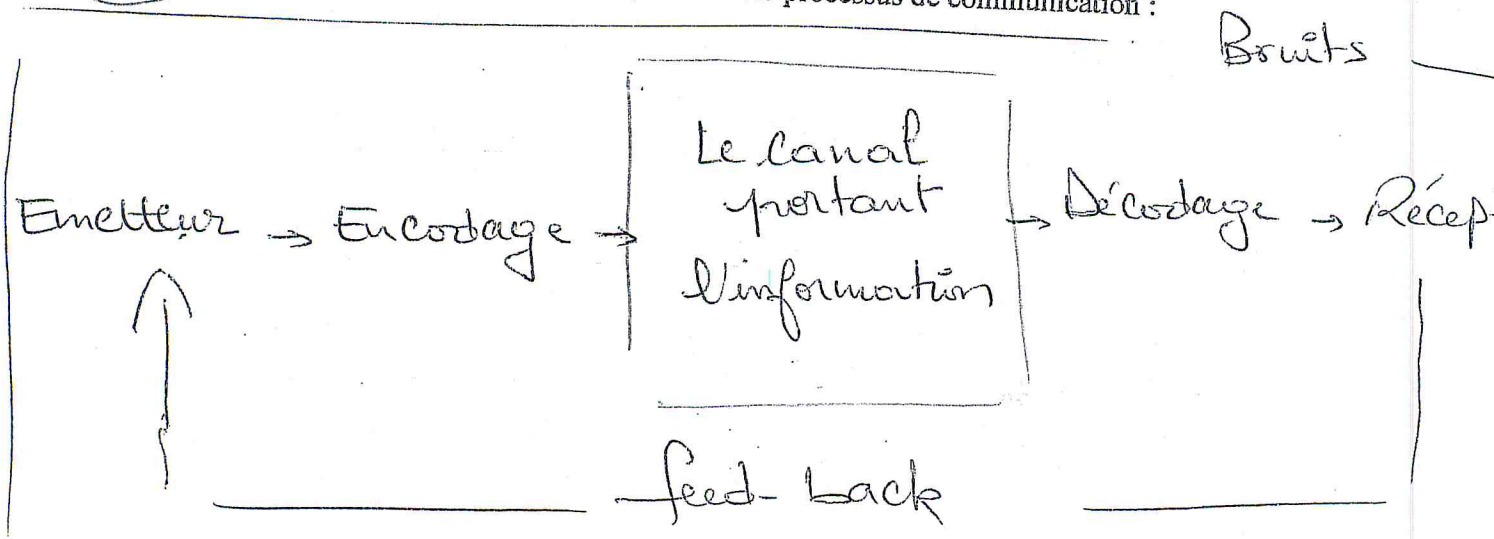 processus de communication :
Bruits
Emetteur → Encodage → Le canal portant l'information → Décodage → Récep
feed-back